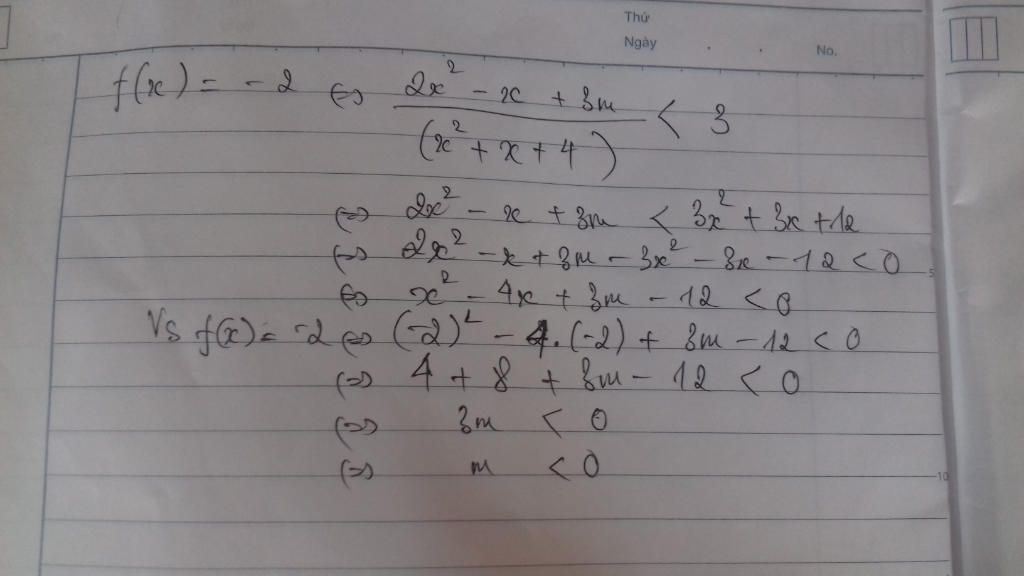 Thứ
Ngày . . No.
f(x) = -2 (=) (2x² - x + 3m)/(x² + x + 4) < 3
(=) 2x² - x + 3m < 3x² + 3x + 12
(=) 2x² - x + 3m - 3x² - 3x - 12 < 0
(=) x² - 4x + 3m - 12 < 0
Vs f(x) = -2 (=) (-2)² - 4.(-2) + 3m - 12 < 0
(=) 4 + 8 + 3m - 12 < 0
(=) 3m < 0
(=) m < 0
5
10